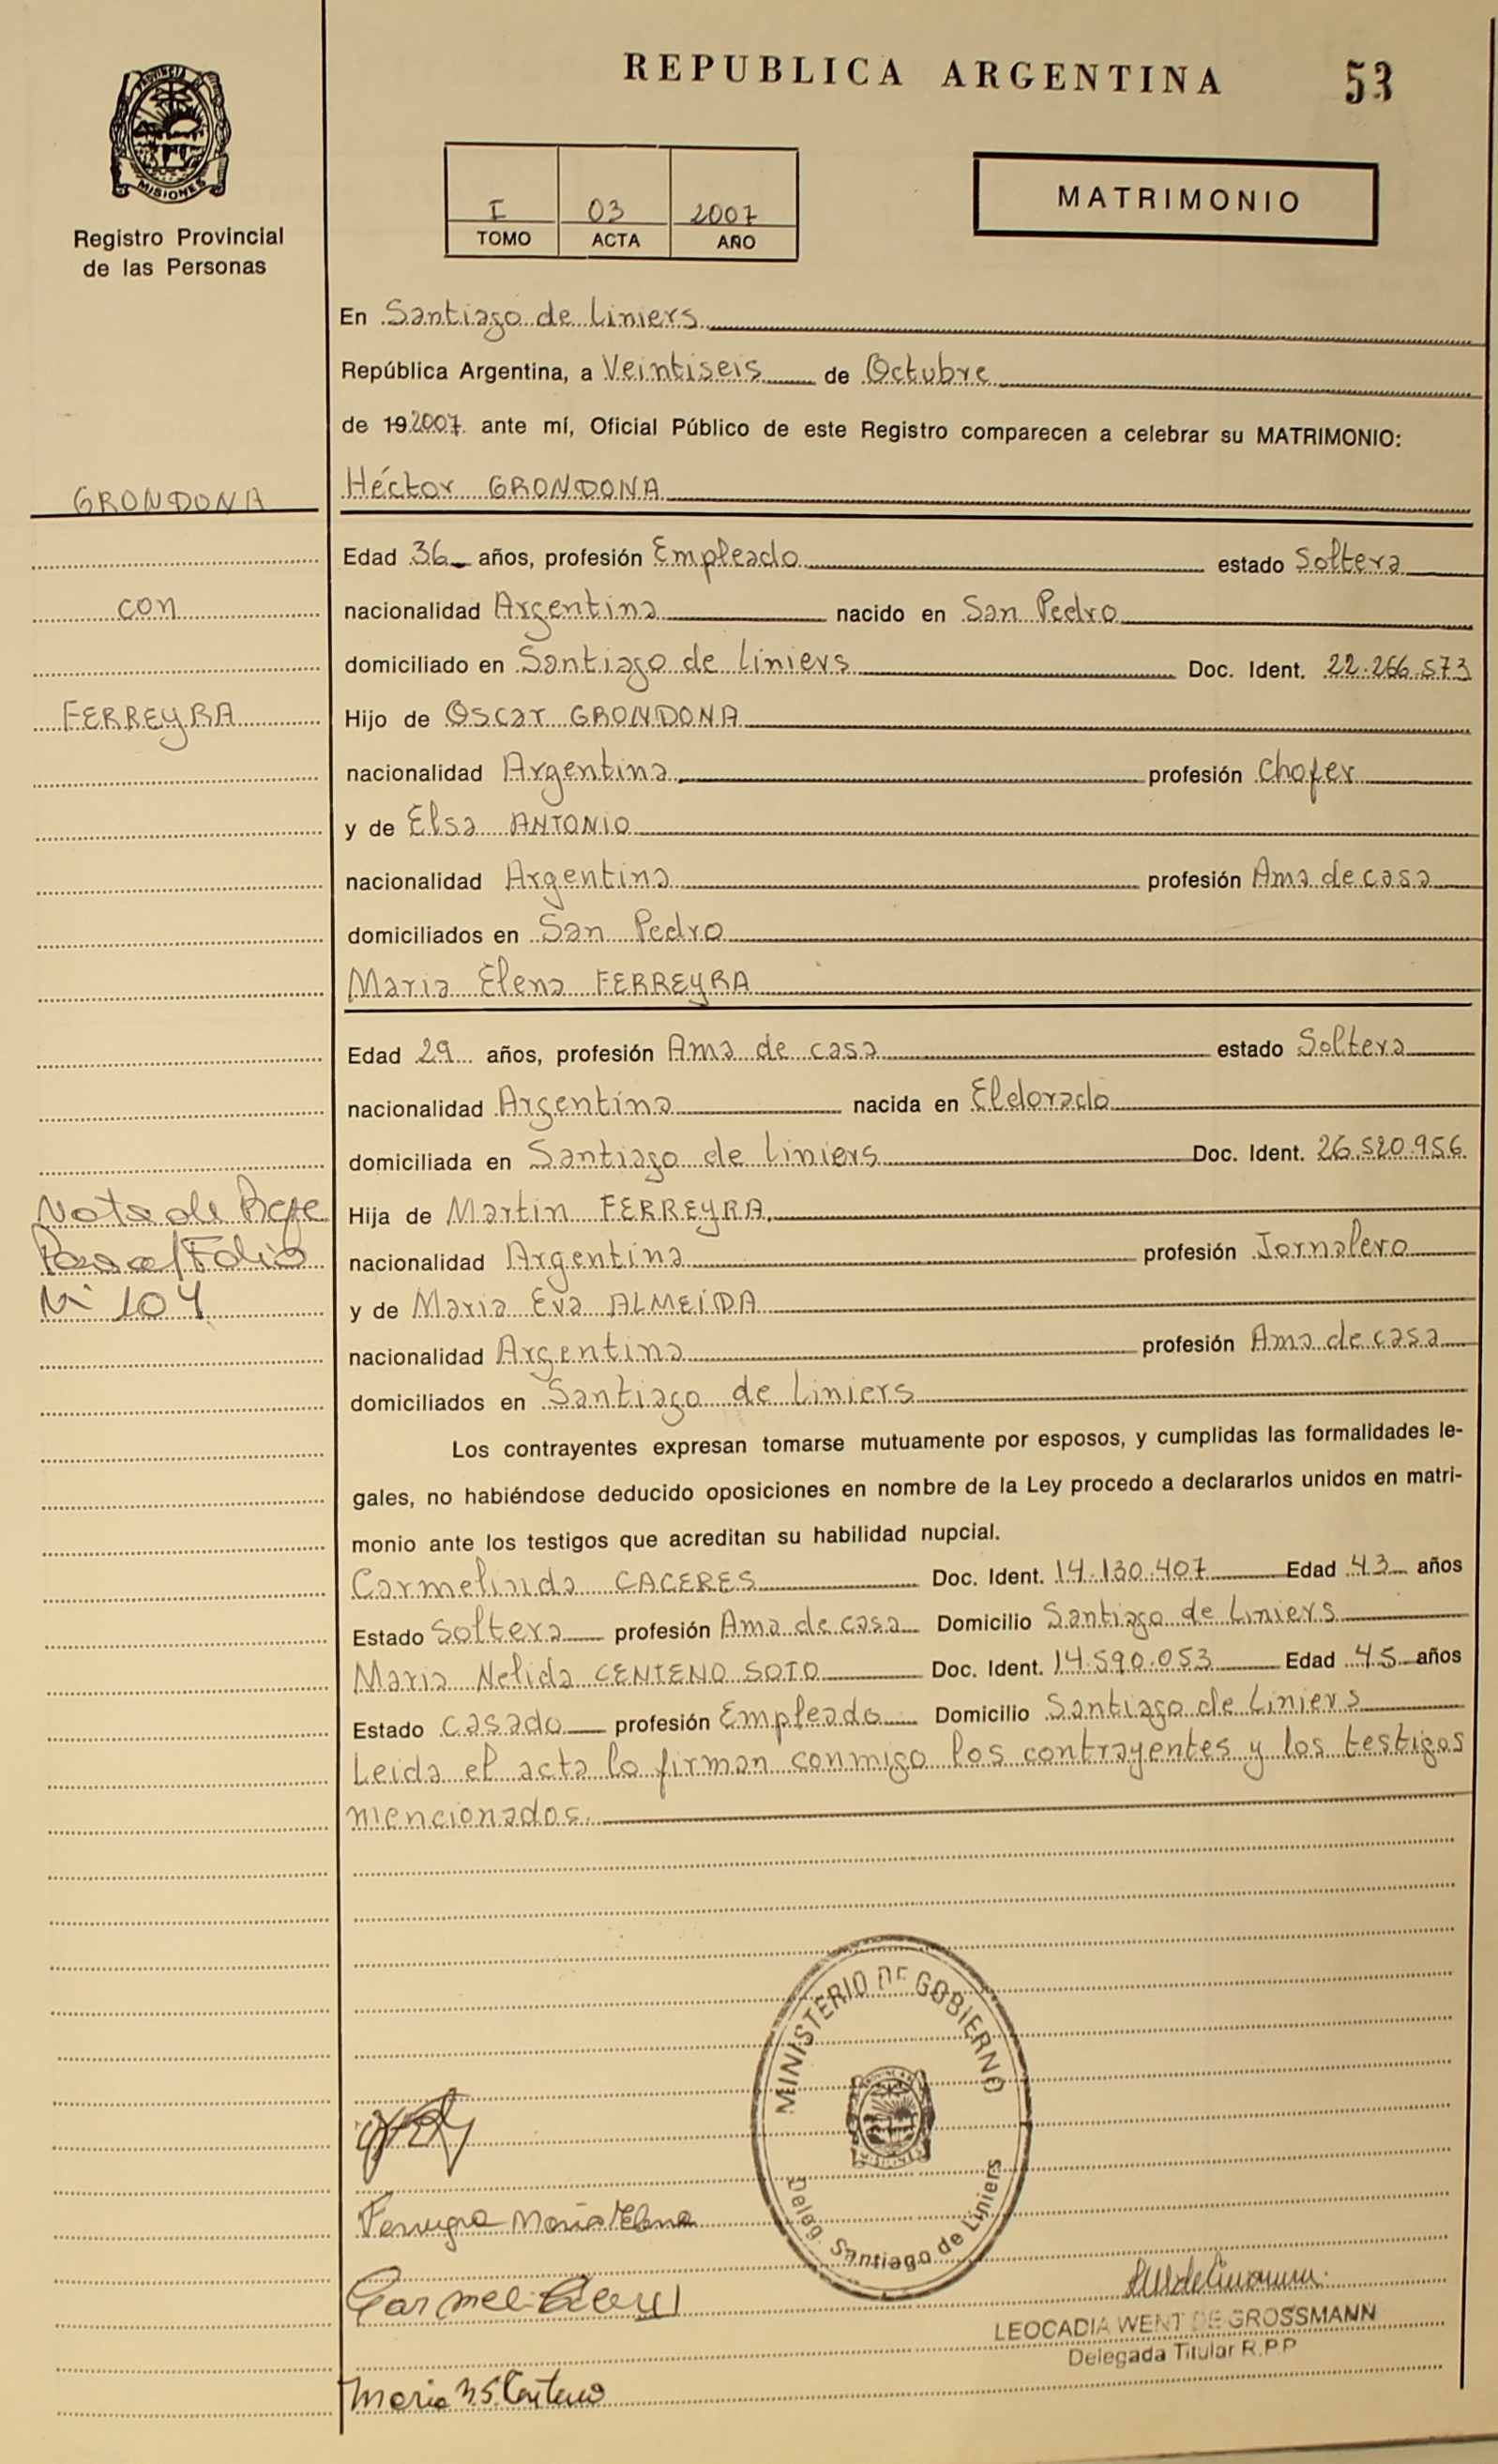 REPUBLICA ARGENTINA 53
PROVINCIA DE
MISIONES
Registro Provincial
de las Personas
I 03 2007
TOMO ACTA AÑO
MATRIMONIO
En Santiago de Liniers
República Argentina, a Veintiseis de Octubre
de 19 2007 ante mí, Oficial Público de este Registro comparecen a celebrar su MATRIMONIO:
GRONDONA
con
FERREYRA
Héctor GRONDONA
Edad 36 años, profesión Empleado estado Soltera
nacionalidad Argentina nacido en San Pedro
domiciliado en Santiago de Liniers Doc. Ident. 22.266.573
Hijo de Oscar GRONDONA
nacionalidad Argentina profesión Chofer
y de Elsa ANTONIO
nacionalidad Argentina profesión Ama de casa
domiciliados en San Pedro
Maria Elena FERREYRA
Edad 29 años, profesión Ama de casa estado Soltera
nacionalidad Argentina nacida en Eldorado
domiciliada en Santiago de Liniers Doc. Ident. 26.520.956
Nota de Refe
Pasa al Folio
Nº 104
Hija de Martin FERREYRA
nacionalidad Argentina profesión Jornalero
y de Maria Eva ALMEIDA
nacionalidad Argentina profesión Ama de casa
domiciliados en Santiago de Liniers
Los contrayentes expresan tomarse mutuamente por esposos, y cumplidas las formalidades le-
gales, no habiéndose deducido oposiciones en nombre de la Ley procedo a declararlos unidos en matri-
monio ante los testigos que acreditan su habilidad nupcial.
Carmelinda CACERES Doc. Ident. 14.130.407 Edad 43 años
Estado Soltera profesión Ama de casa Domicilio Santiago de Liniers
Maria Nelida CENTENO SOTO Doc. Ident. 14.590.053 Edad 45 años
Estado Casado profesión Empleado Domicilio Santiago de Liniers
Leida el acta lo firman conmigo los contrayentes y los testigos
mencionados.
MINISTERIO DE GOBIERNO
Deleg. Santiago de Liniers
Ferreyra Maria Elena
LEOCADIA WENT DE GROSSMANN
Delegada Titular R.P.P